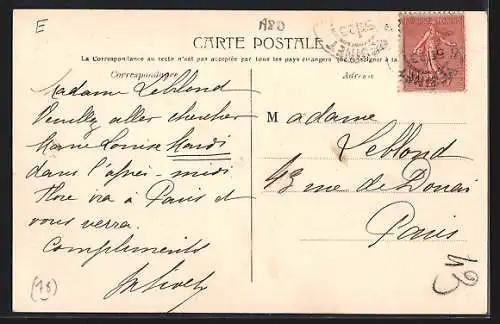 E
A80
CARTE POSTALE
La Correspondance au recto n'est pas acceptée par tous les pays étrangers (Se renseigner à la
Correspondance
Adresse
Madame Leblond
Veuillez aller chercher
Marie Louise Mardi
dans l'après-midi
Flore ira à Paris et
vous verra.
Compliments
Madame
Leblond
43 rue de Douai
Paris
(78)